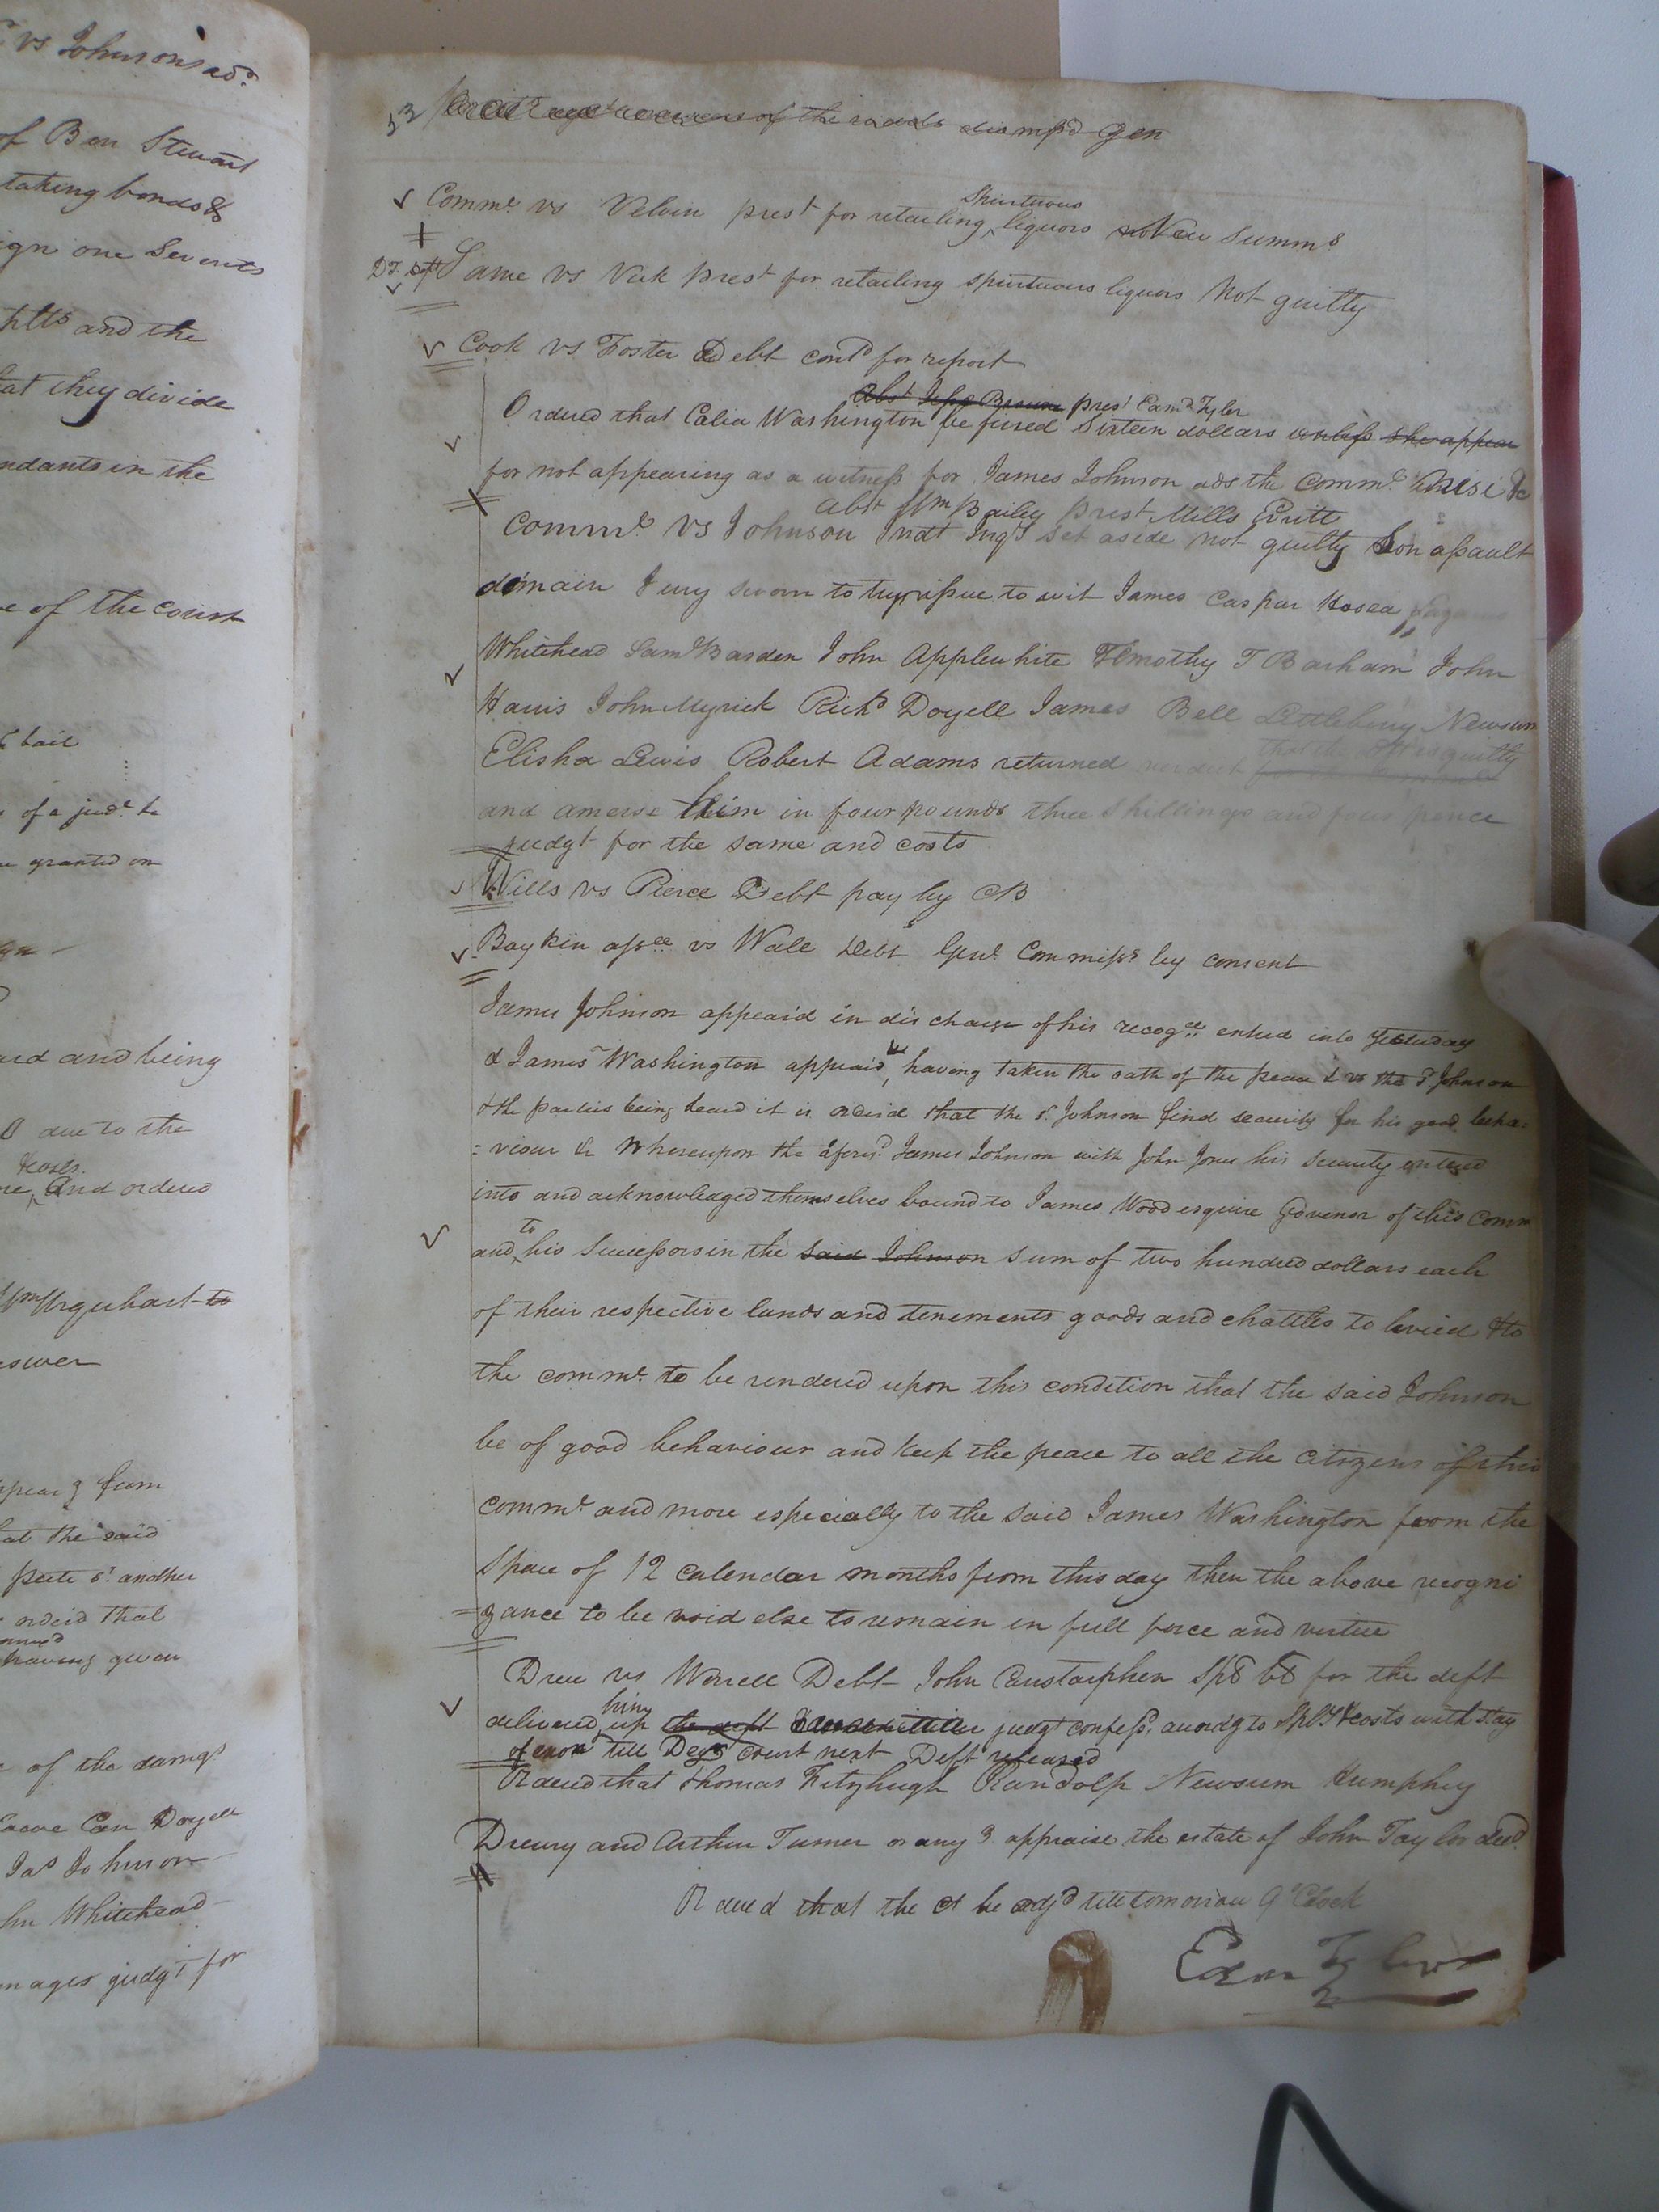 vs Johnsons ad.r
of Ben Stewart
taking bonds &
ign one Seventh
and the
at they divide
ndants in the
e of the court
bail
of a jud.t be
granted on
and being
due to the
costs.
And ordered
Urquhart to
swer
from
at the said
another
orderd that
having given
of the damgs
Doyell
Jas Johnson
hn Whitehead
mages judgt for
of the roads dismsd gen
Comm.e vs Velvin prest for retailing spirituous liquors New Summs
Same vs Vick prest for retailing spirituous liquors Not guilty
Cook vs Foster Debt contd for report
Abst Jesse Browne prest Sam.l Tyler
Ordered that Celia Washington be fined Sixteen dollars unless she appear
for not appearing as a witness for James Johnson ads the Comm.e Nisi &c
Abst Wm Bailey prest Mills Britt
Comm.e vs Johnson Indt Jugt set aside not guilty son assault
domain Jury sworn to try issue to wit James Caspar Hosea
Whitehead Saml Barden John Applewhite Timothy T Barham John
Harris John Myrick Richd Doyell James Bell Littlebury Newsum
Elisha Lewis Robert Adams returned verdict that the deft is guilty
and amerse him in four pounds three shillings and four pence
judgt for the same and costs
Wills vs Pierce Debt pay by CB
Boykin assee vs Wall Debt Genl Commissn by consent
James Johnson appeard in discharge of his recogce entred into yesterday
& James Washington appeard, having taken the oath of the peace & vs the sd Johnson
& the parties being heard it is orderd that the sd Johnson find security for his good beha=
=viour &c Whereupon the afores.d James Johnson with John Jones his security entered
into and acknowledged themselves bound to James Wood esquire Govenor of this Comm
and to his Successors in the said Johnson sum of two hundred dollars each
of their respective lands and tenements goods and chattles to levied & to
the comm.e to be rendered upon this condition that the said Johnson
be of good behaviour and keep the peace to all the citizens of this
comm.e and more especially to the said James Washington from the
space of 12 calendar months from this day then the above recogni
=zance to be void else to remain in full force and virtue
Drew vs Worrell Debt John Carstarphen Sp8 b8 for the deft
delivered him up the deft judgt confess. accordg to Sp8 & costs with stay
of exon till Decr court next Deft released
Ordered that Thomas Fitzhugh Randolph Newsum Humphry
Drewry and Arthur Turner or any 3 appraise the estate of John Taylor decd.
Ordered that the ct be adjd till tomorrow 9 oClock
Sam Tyler